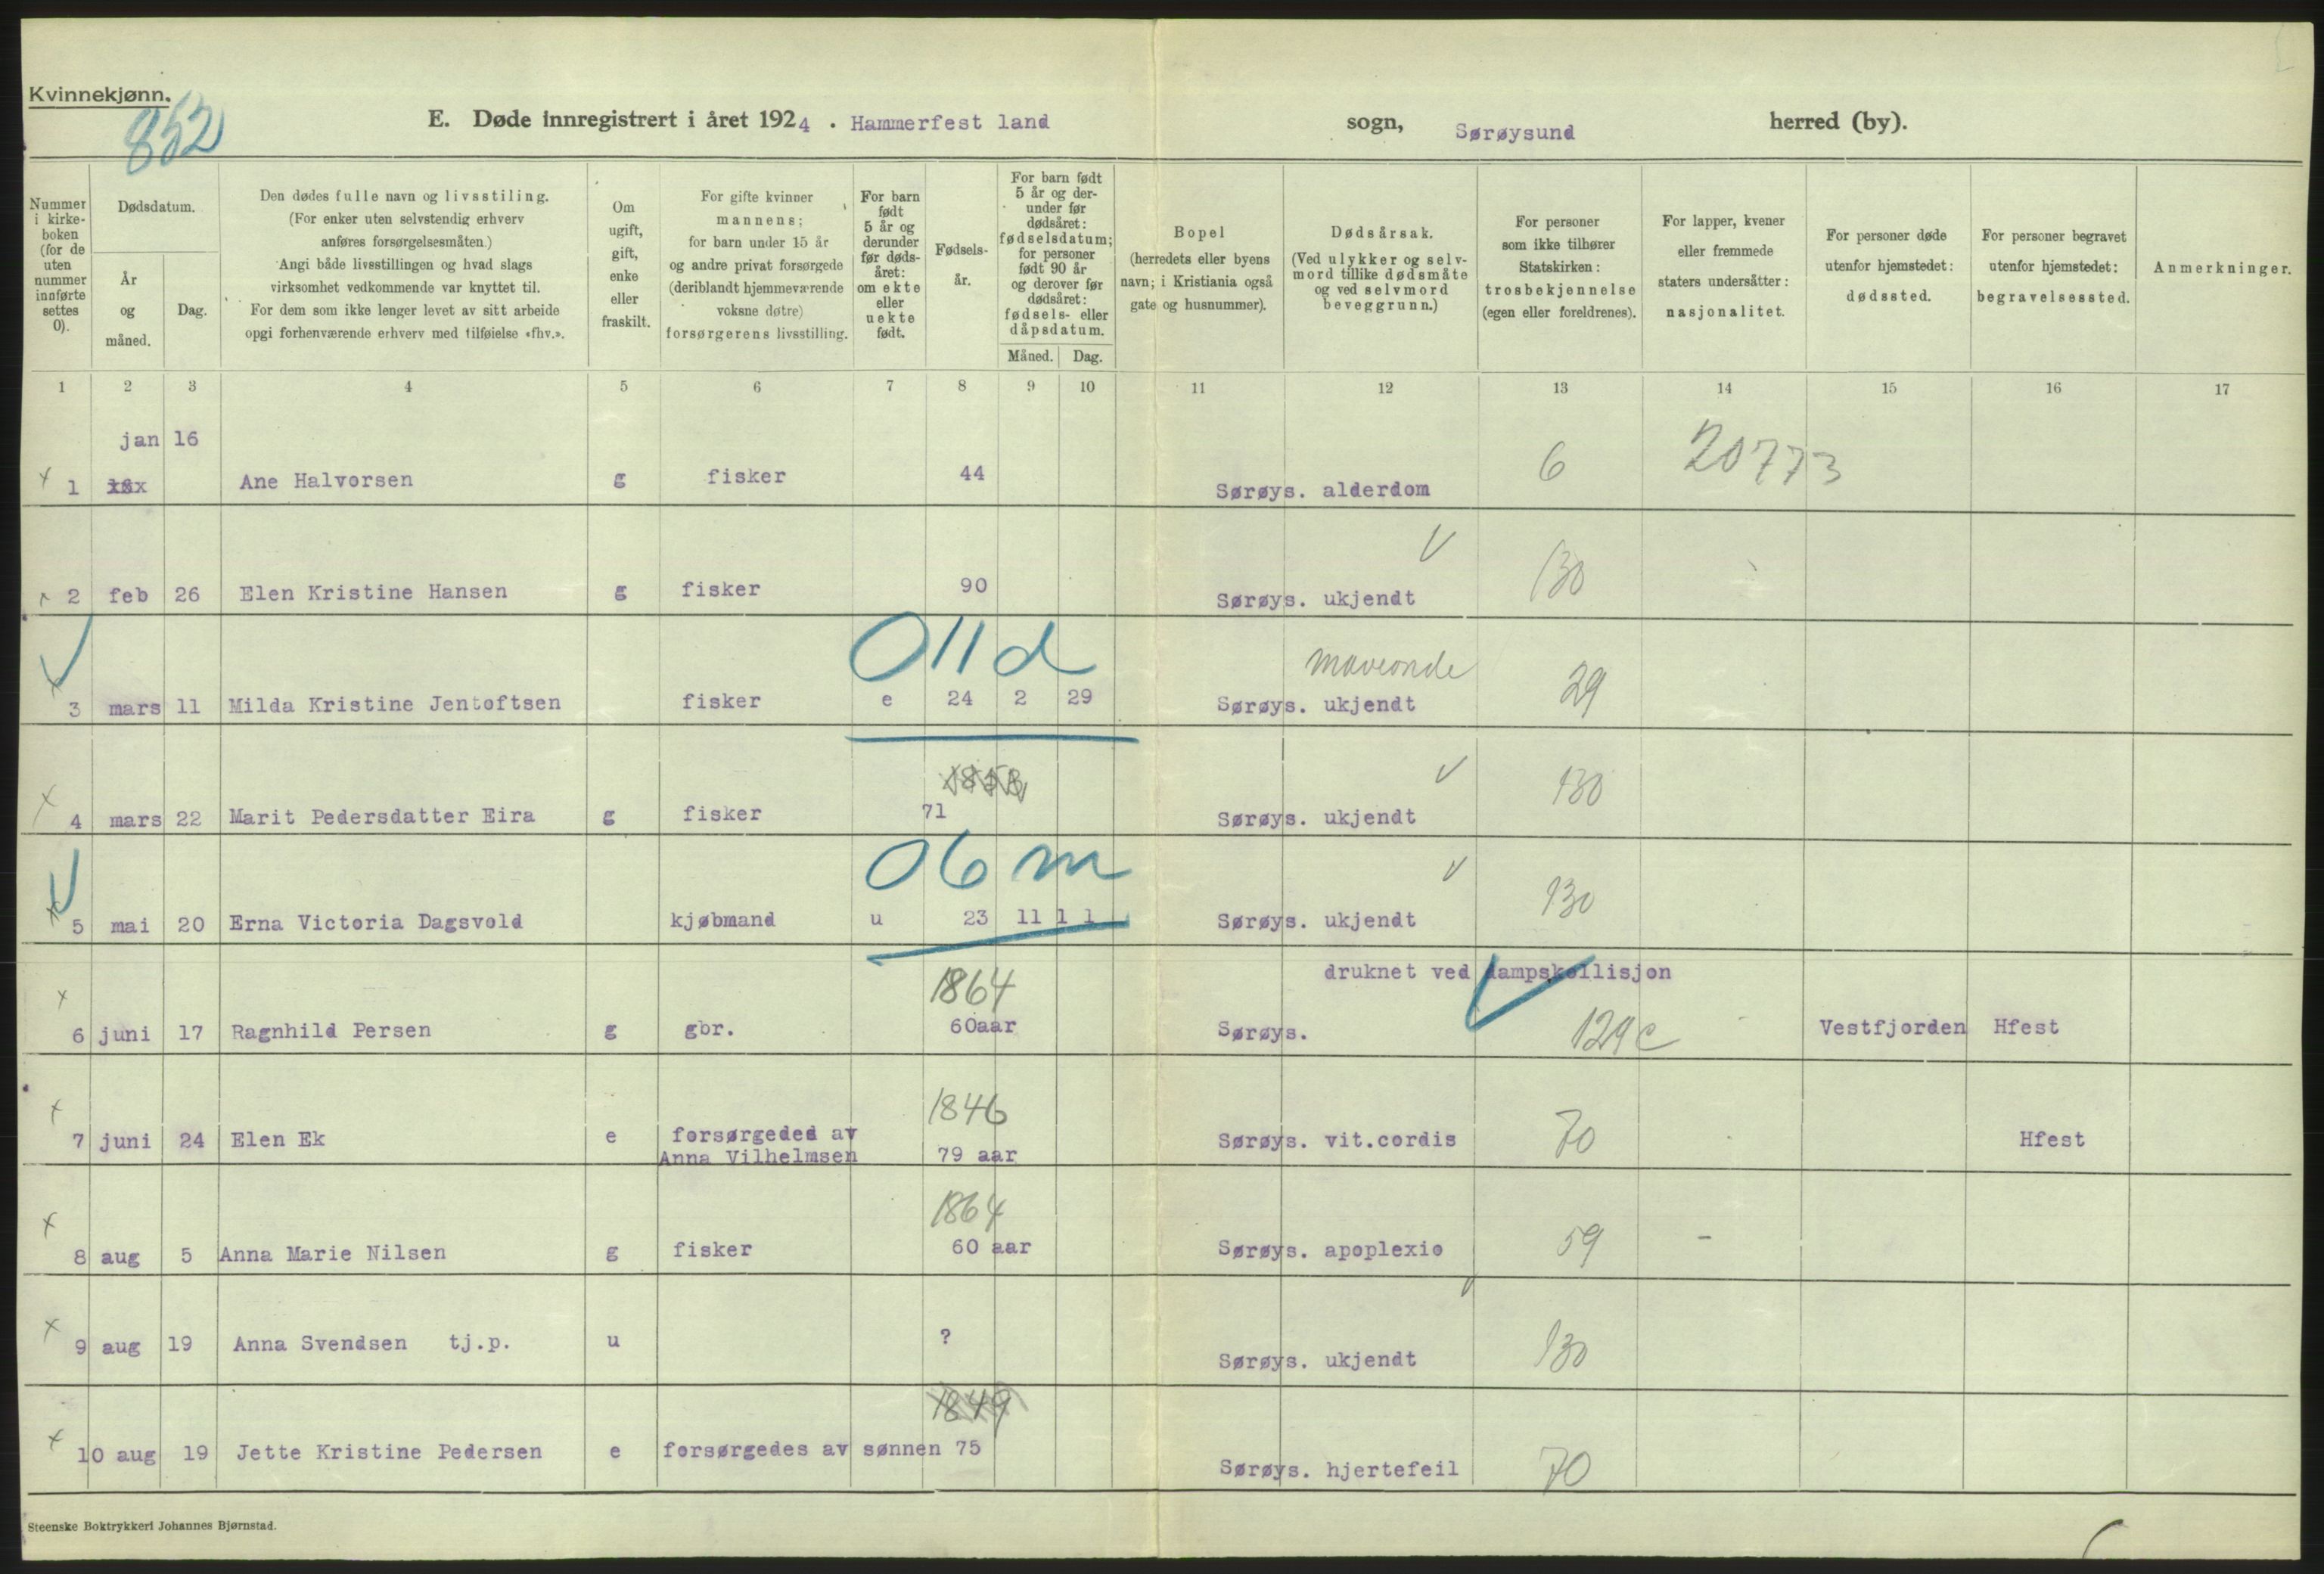 Kvinnekjønn.
852
E. Døde innregistrert i året 1924 . Hammerfest land sogn, Sørøysund herred (by).
Nummer i kirkeboken (for de uten nummer innførte settes 0).
Dødsdatum.
År og måned.
Dag.
Den dødes fulle navn og livsstiling.
(For enker uten selvstendig erhverv
anføres forsørgelsesmåten.)
Angi både livsstillingen og hvad slags
virksomhet vedkommende var knyttet til.
For dem som ikke lenger levet av sitt arbeide
opgi forhenværende erhverv med tilføielse «fhv.».
Om ugift, gift, enke eller fraskilt.
For gifte kvinner
mannens;
for barn under 15 år
og andre privat forsørgede
(deriblandt hjemmeværende
voksne døtre)
forsørgerens livsstilling.
For barn født 5 år og derunder før dødsåret: om ekte eller uekte født.
Fødselsår.
For barn født 5 år og derunder før dødsåret: fødselsdatum; for personer født 90 år og derover før dødsåret: fødsels- eller dåpsdatum.
Måned. Dag.
Bopel
(herredets eller byens
navn; i Kristiania også
gate og husnummer).
Dødsårsak.
(Ved ulykker og selvmord tillike dødsmåte
og ved selvmord
beveggrunn.)
For personer
som ikke tilhører
Statskirken:
trosbekjennelse
(egen eller foreldrenes).
For lapper, kvener
eller fremmede
staters undersåtter:
nasjonalitet.
For personer døde
utenfor hjemstedet:
dødssted.
For personer begravet
utenfor hjemstedet:
begravelsessted.
Anmerkninger.
1 2 3 4 5 6 7 8 9 10 11 12 13 14 15 16 17
jan 16
1 Ane Halvorsen g fisker 44 Sørøys. alderdom 6 20773
2 feb 26 Elen Kristine Hansen g fisker 90 Sørøys. ukjendt 130
011 d
maveonde
3 mars 11 Milda Kristine Jentoftsen fisker e 24 2 29 Sørøys. ukjendt 29
4 mars 22 Marit Pedersdatter Eira g fisker 71 Sørøys. ukjendt 130
06 m
5 mai 20 Erna Victoria Dagsvold kjøbmand u 23 11 1 1 Sørøys. ukjendt 130
1864 druknet ved dampskollisjon
6 juni 17 Ragnhild Persen g gbr. 60aar Sørøys. 129c Vestfjorden Hfest
1846
7 juni 24 Elen Ek e forsørgeded av Sørøys. vit.cordis 70 Hfest
Anna Vilhelmsen 79 aar
1864
8 aug 5 Anna Marie Nilsen g fisker 60 aar Sørøys. apoplexio 59 -
9 aug 19 Anna Svendsen tj.p. u ? Sørøys. ukjendt 130
1849
10 aug 19 Jette Kristine Pedersen e forsørgedes av sønnen 75 Sørøys. hjertefeil 70
Steenske Boktrykkeri Johannes Bjørnstad.